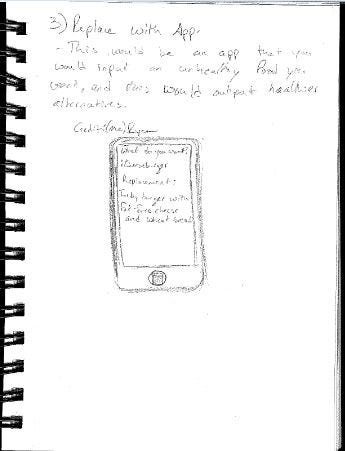 3) Replace with App.
- This would be an app that you
would input an unhealthy food you
want, and this would output healthier
alternatives.
Credit: (me) Ryan
What do you want?
Cheeseburger
Replacement:
Turkey burger with
Fat-free cheese
and wheat bread